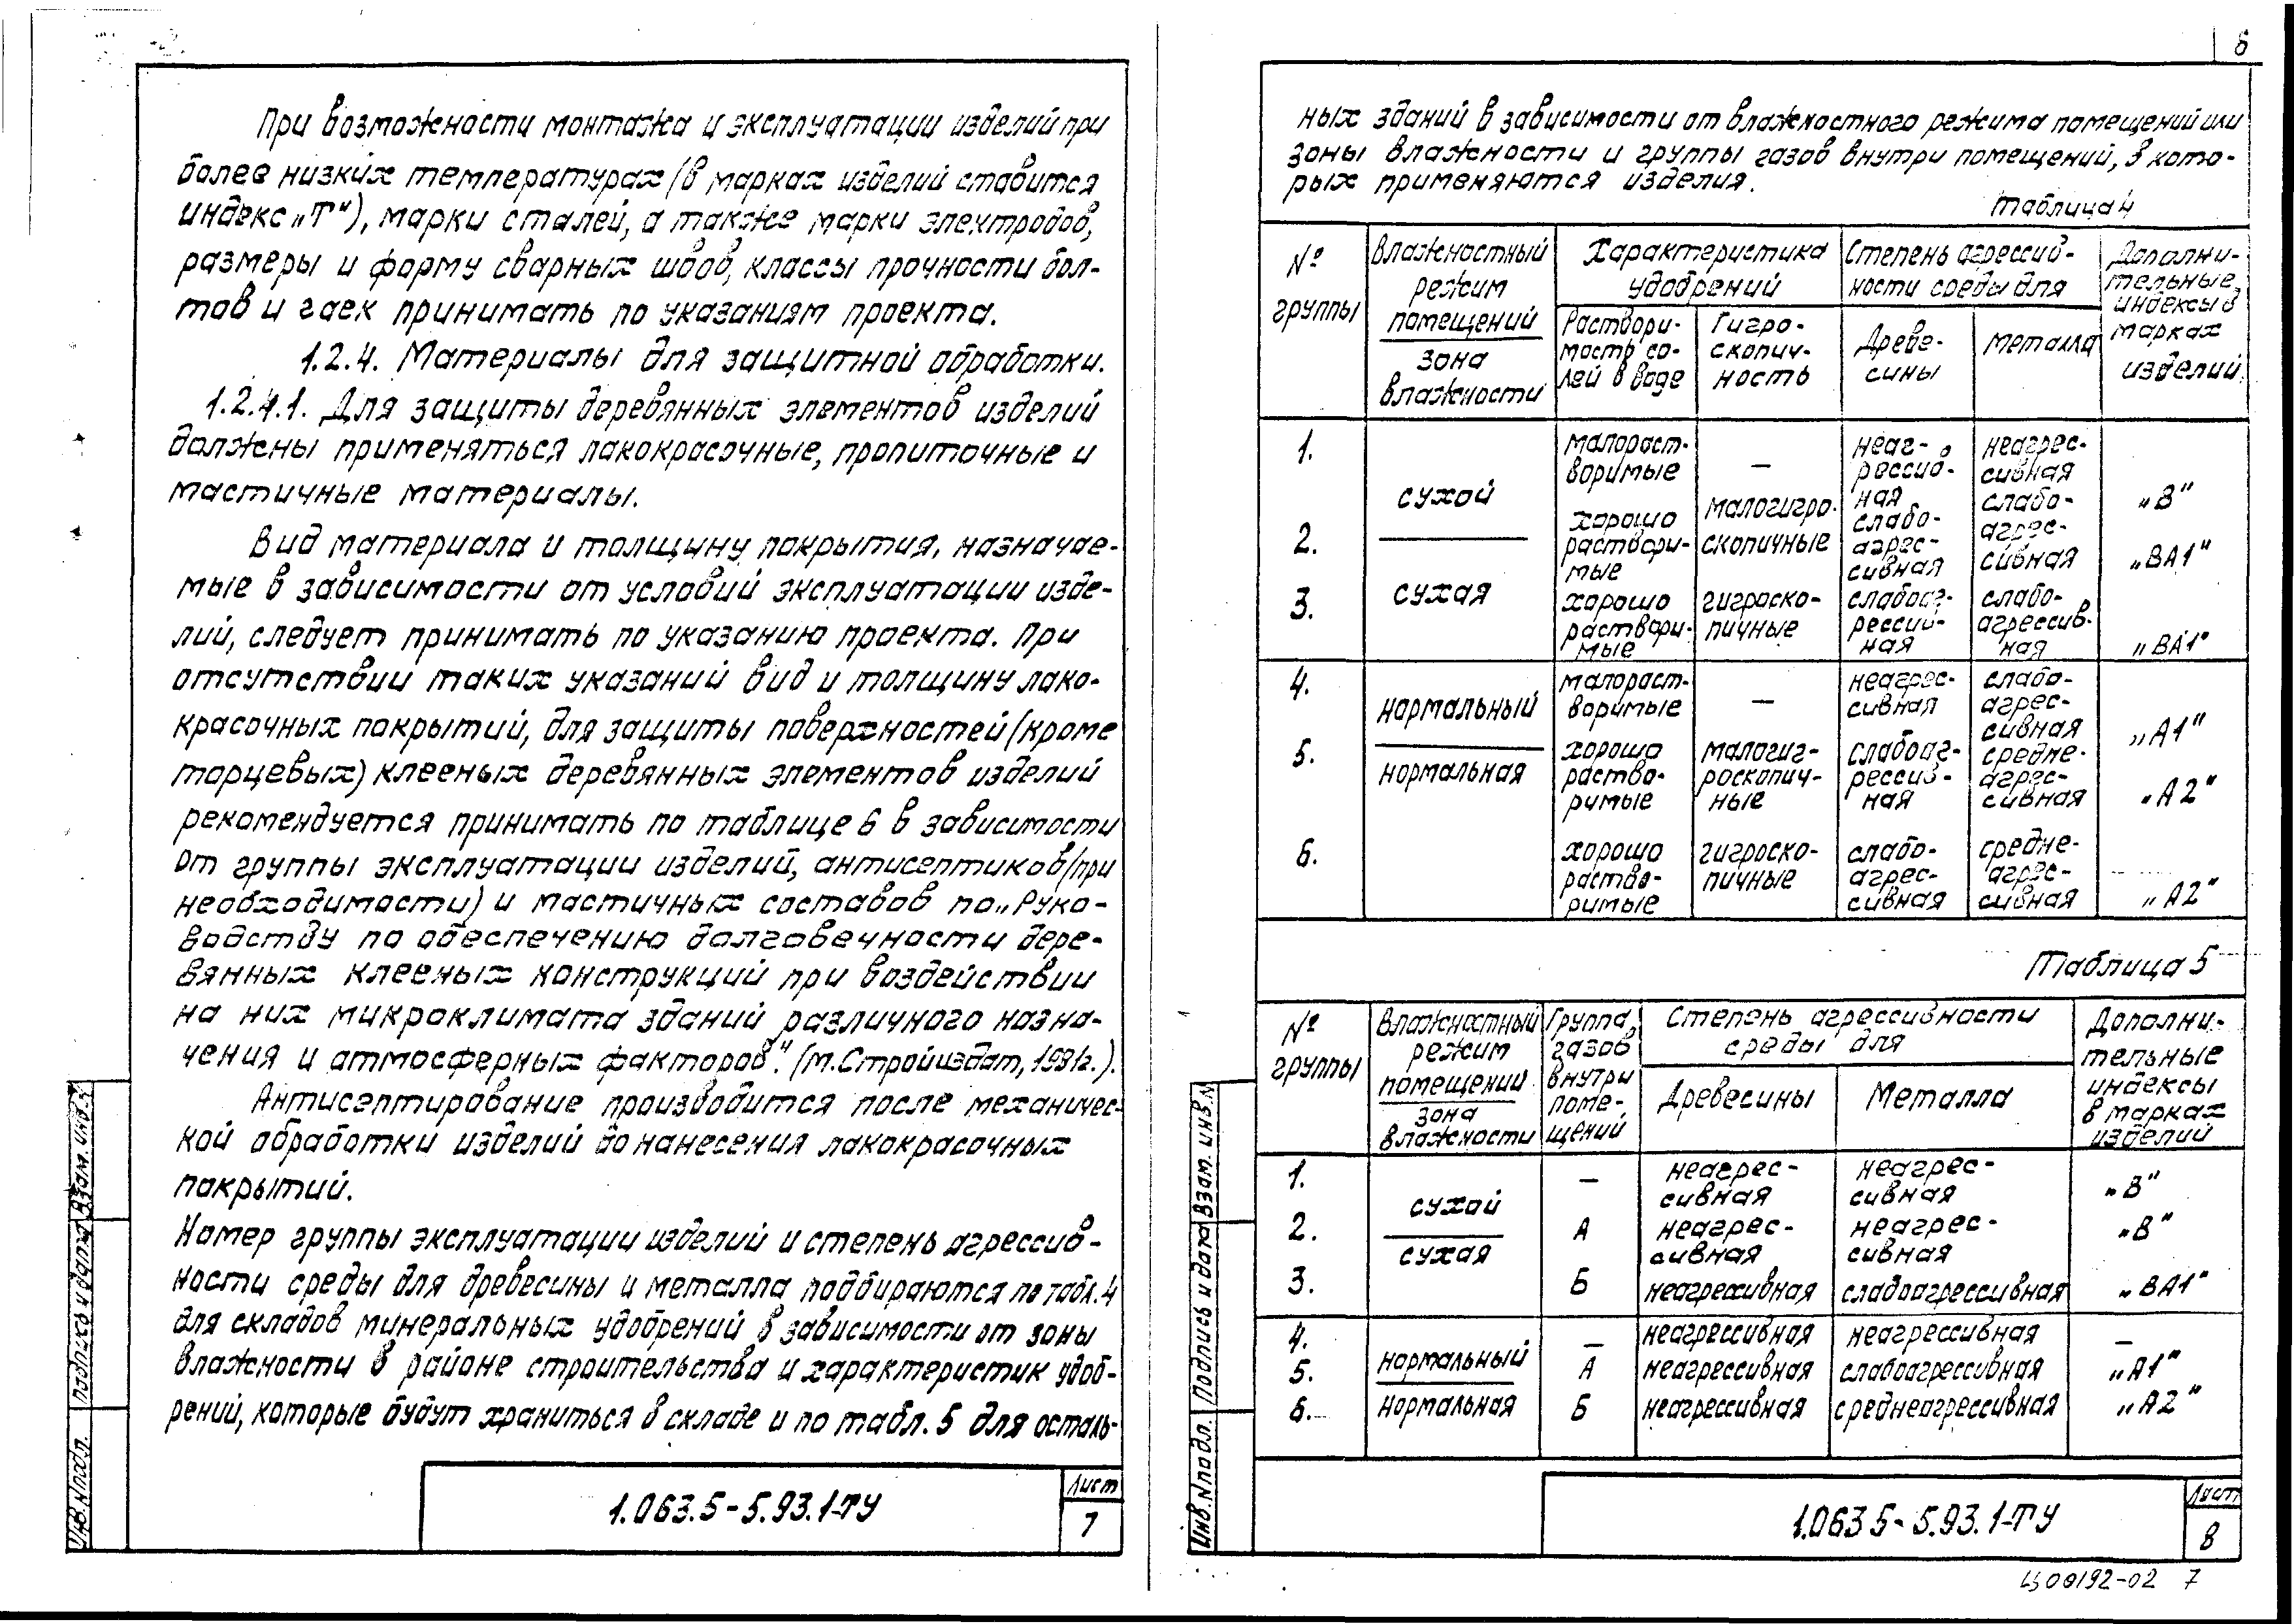 При возможности монтажа и эксплуатации изделий при
более низких температурах (в марках изделий ставится
индекс „Т"), марки сталей, а также марки электродов,
размеры и форму сварных швов, классы прочности бол-
тов и гаек принимать по указаниям проекта.
1.2.4. Материалы для защитной обработки.
1.2.4.1. Для защиты деревянных элементов изделий
должны применяться лакокрасочные, пропиточные и
мастичные материалы.
Вид материала и толщину покрытия, назначае-
мые в зависимости от условий эксплуатации изде-
лий, следует принимать по указанию проекта. При
отсутствии таких указаний вид и толщину лако-
красочных покрытий, для защиты поверхностей (кроме
торцевых) клееных деревянных элементов изделий
рекомендуется принимать по таблице 6 в зависимости
от группы эксплуатации изделий, антисептиков (при
необходимости) и мастичных составов по „Руко-
водству по обеспечению долговечности дере-
вянных клееных конструкций при воздействии
на них микроклимата зданий различного назна-
чения и атмосферных факторов". (М. Стройиздат, 1981г.).
Антисептирование производится после механичес-
кой обработки изделий до нанесения лакокрасочных
покрытий.
Номер группы эксплуатации изделий и степень агрессив-
ности среды для древесины и металла подбираются по табл. 4
для складов минеральных удобрений в зависимости от зоны
влажности в районе строительства и характеристик удоб-
рений, которые будут храниться в складе и по табл. 5 для осталь-
Инв.№подл. Подпись и дата Взам. инв.№
1.063.5-5.93.1-ТУ
Лист
7
6
ных зданий в зависимости от влажностного режима помещений или
зоны влажности и группы газов внутри помещений, в кото-
рых применяются изделия.
Таблица 4
№ группы
Влажностный режим помещений
зона влажности
Характеристика удобрений
Раствори-мость со-лей в воде
Гигро-скопич-ность
Степень агрессив-ности среды для
Древе-сины
Металла
Дополни-тельные индексы в марках изделий
1. малораст-воримые — неаг-рессив-ная неагрес-сивная „В"
сухой
сухая
2. хорошо раствори-мые малогигро-скопичные слабо-агрес-сивная слабо-агрес-сивная „ВА1"
3. хорошо раствори-мые гигроско-пичные слабоаг-рессив-ная слабо-агрессив-ная „ВА1"
4. малораст-воримые — неагрес-сивная слабо-агрес-сивная „А1"
нормальный
нормальная
5. хорошо раство-римые малогиг-роскопич-ные слабоаг-рессив-ная средне-агрес-сивная „А2"
6. хорошо раство-римые гигроско-пичные слабо-агрес-сивная средне-агрес-сивная „А2"
Таблица 5
№ группы
Влажностный режим помещений
зона влажности
Группа газов внутри поме-щений
Степень агрессивности среды для
Древесины
Металла
Дополни-тельные индексы в марках изделий
1. — неагрес-сивная неагрес-сивная „В"
сухой
сухая
2. А неагрес-сивная неагрес-сивная „В"
3. Б неагрессивная слабоагрессивная „ВА1"
4. — неагрессивная неагрессивная —
нормальный
5. А неагрессивная слабоагрессивная „А1"
нормальная
6. Б неагрессивная среднеагрессивная „А2"
Инв.№подл. Подпись и дата Взам. инв.№
1.063 5-5.93.1-ТУ
Лист
8
Ц00192-02 7